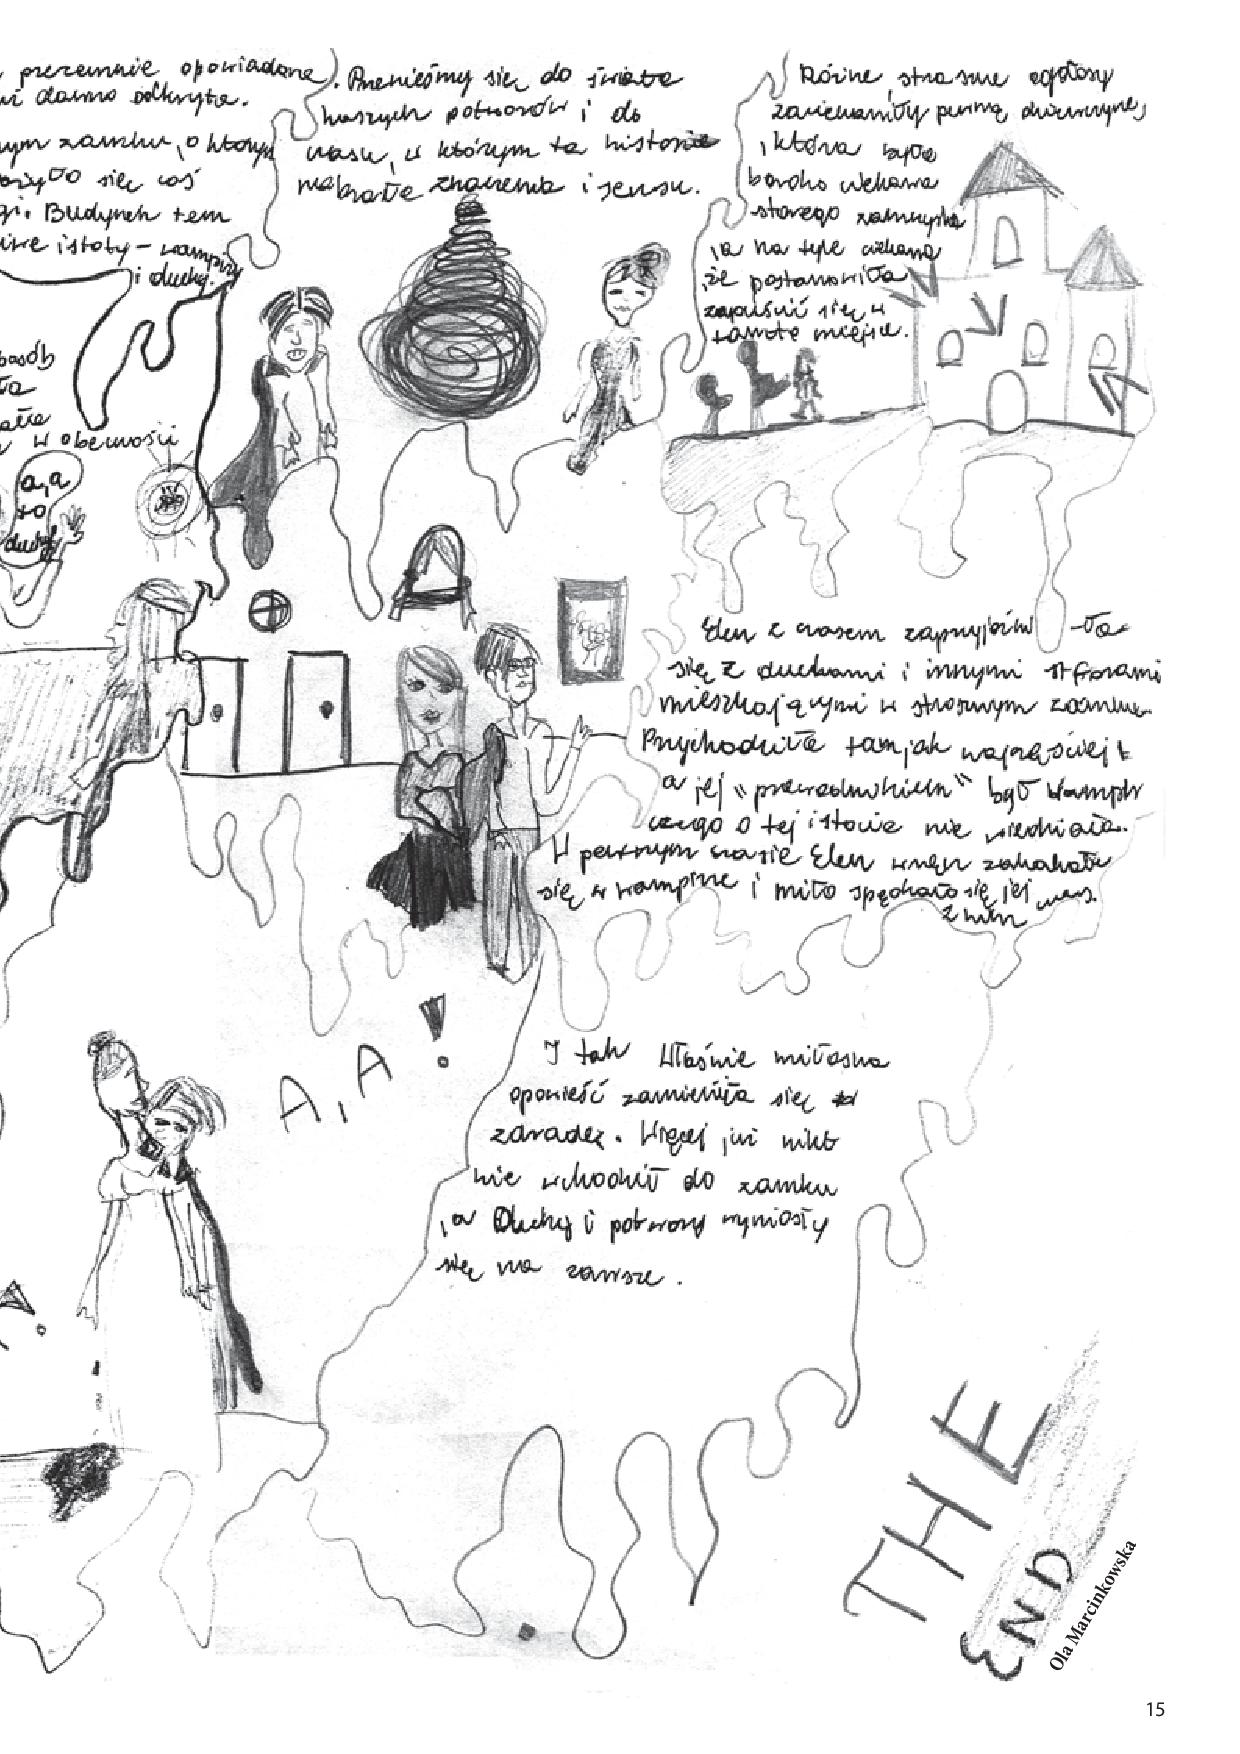 przezemnie opowiadana
dawno odkryta.
zamku, o którym
się coś
Budynek tem
istoty – wampiry
i duchy.
w obecności
a, a
to
duchy
. Przenieśmy się do świata
naszych potworów i do
czasu, w którym ta historia
nabrała znaczenia i sensu.
Różne, straszne odgłosy
zaciekawiły pewną dziewczynę,
, która była
bardzo ciekawa
starego zamczyska
, a na tyle ciekawa
, że postanowiła
zapuścić się w
tamto miejsce.
Elen z czasem zaprzyjaźni -ła
się z duchami i innymi stforami
mieszkającymi w strasznym zamku.
Przychodziła tam jak najczęściej
a jej "przewodnikiem" był wampir
czego o tej istocie nie wiedziała.
W pewnym czasie Elen zakochała
się w wampirze i miło spędzało się jej czas.
z nim
A, A!
I tak właśnie miłosna
opowieść zamieniła się w
zdradę. Więcej już nikt
nie wchodził do zamku
, a Duchy i potwory wyniosły
się na zawsze.
THE
END
Ola Marcinkowska
15